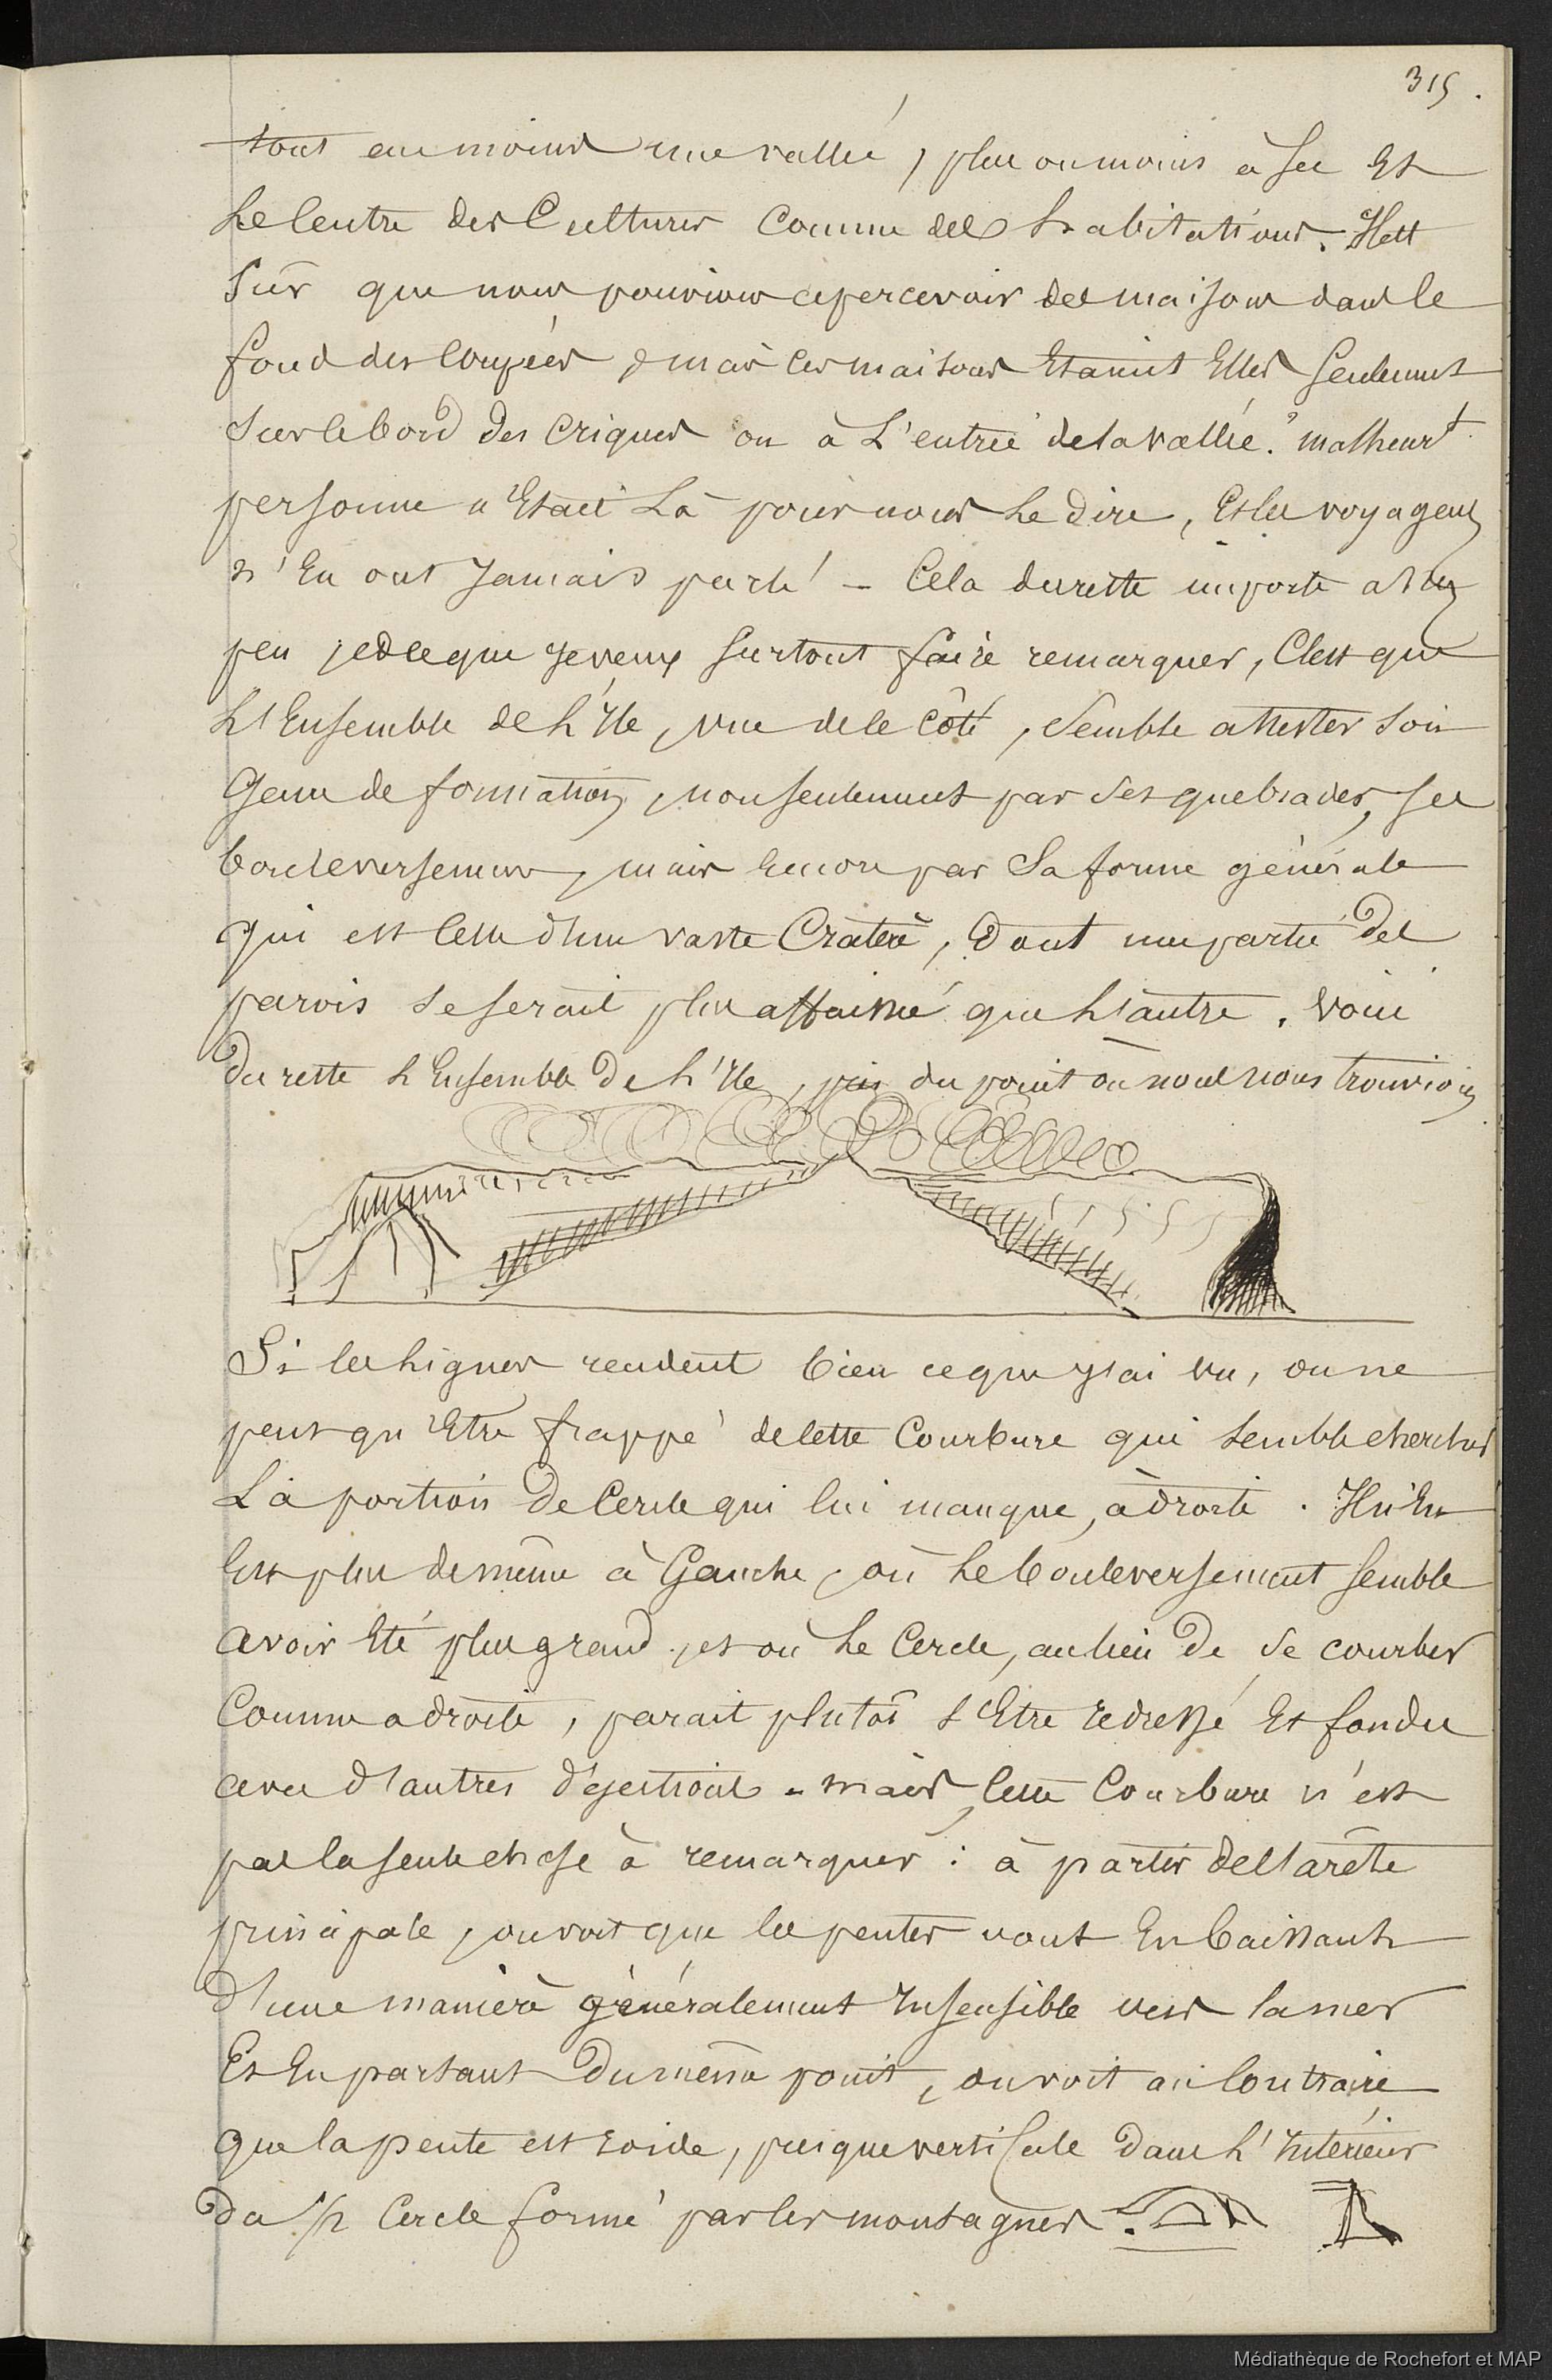 315.
tout au moins une vallée, plus ou moins à sec Et
Le Centre des Cultures Comme des habitations. Il est
Sûr que nous pouvions apercevoir des maisons dans le
fond des Coupées, mais ces maisons Etaient Elles Seulement
Sur le bord des Criques ou à L'entrée de la vallée? malheurt
personne n'Etait Là pour nous Le dire, Et les voyageurs
n'En ont Jamais parlé – Cela du reste importe assez
peu, et ce que Je veux Surtout faire remarquer, C'est que
L'Ensemble de L'Ile, vue de ce Côté, Semble attester Son
Genre de formation, non seulement par Ses quebrades, Ses
bouleversemens, mais Encore par Sa forme générale
qui est Celle d'un vaste Cratère, Dont une partie Des
parois Se serait plus affaissée que L'autre. Voici
du reste L'Ensemble De L'Ile, pris du point où nous nous trouvions
Si les Lignes rendent bien ce que J'ai vu, on ne
peut qu'Etre frappé de cette Courbure qui Semble chercher
La portion De Cercle qui lui manque, à droite. Il n'En
Est plus de même à Gauche, où Le bouleversement semble
avoir Eté plus grand, et où Le Cercle, au lieu De Se courber
Comme a droite, parait plutôt s'Etre redressé Et fondu
avec d'autres déjections – mais Cette Courbure n'est
pas la seule chose à remarquer : à partir de L'arête
principale, on voit que les pentes vont En baissant
d'une manière généralement Insensible vers la mer
Et En partant Du même point, on voit au Contraire
que la pente est roide, presque verticale Dans L'Intérieur
du 1/2 Cercle formé par les montagnes.
Médiathèque de Rochefort et MAP